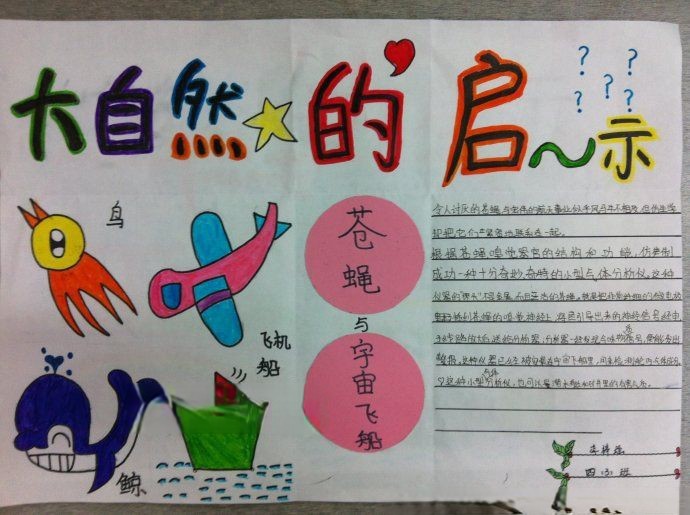 大自然的启示
? ? ? ?
鸟
飞机
船
鲸
苍蝇
与
宇宙飞船
令人讨厌的苍蝇,与宏伟的航天事业似乎风马牛不相及,但仿生学
却把它们紧紧地联系在一起。
根据苍蝇嗅觉器官的结构和功能,仿制
成功一种十分奇妙奇特的小型气体分析仪。这种
仪器的“探头”不是金属,而是活的苍蝇。就是把非常纤细的微电极
插到苍蝇的嗅觉神经上,将引导出来的神经信号经电
子线路放大后,送给分析器;分析器一经发现气味物质的信号,便能发出
警报。这种仪器已经被安装在宇宙飞船里,用来检测舱内气体成分
这种小型气体分析仪,也可以测量潜水艇和矿井里的有害气体。
四 班